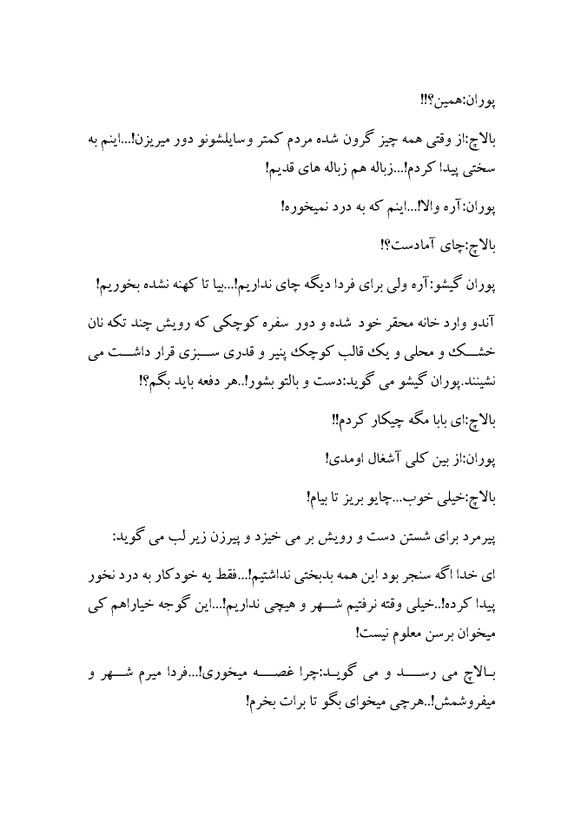 پوران:همین؟!!
بالاچ:از وقتی همه چیز گرون شده مردم کمتر وسایلشونو دور میریزن!...اینم به
سختی پیدا کردم!...زباله هم زباله های قدیم!
پوران:آره والا!...اینم که به درد نمیخوره!
بالاچ:چای آمادست؟!
پوران گیشو:آره ولی برای فردا دیگه چای نداریم!...بیا تا کهنه نشده بخوریم!
آندو وارد خانه محقر خود شده و دور سفره کوچکی که رویش چند تکه نان
خشک و محلی و یک قالب کوچک پنیر و قدری سبزی قرار داشت می
نشینند.پوران گیشو می گوید:دست و بالتو بشور!..هر دفعه باید بگم؟!
بالاچ:ای بابا مگه چیکار کردم!!
پوران:از بین کلی آشغال اومدی!
بالاچ:خیلی خوب...چایو بریز تا بیام!
پیرمرد برای شستن دست و رویش بر می خیزد و پیرزن زیر لب می گوید:
ای خدا اگه سنجر بود این همه بدبختی نداشتیم!...فقط یه خودکار به درد نخور
پیدا کرده!..خیلی وقته نرفتیم شهر و هیچی نداریم!...این گوجه خیاراهم کی
میخوان برسن معلوم نیست!
بالاچ می رسد و می گوید:چرا غصه میخوری!...فردا میرم شهر و
میفروشمش!..هرچی میخوای بگو تا برات بخرم!